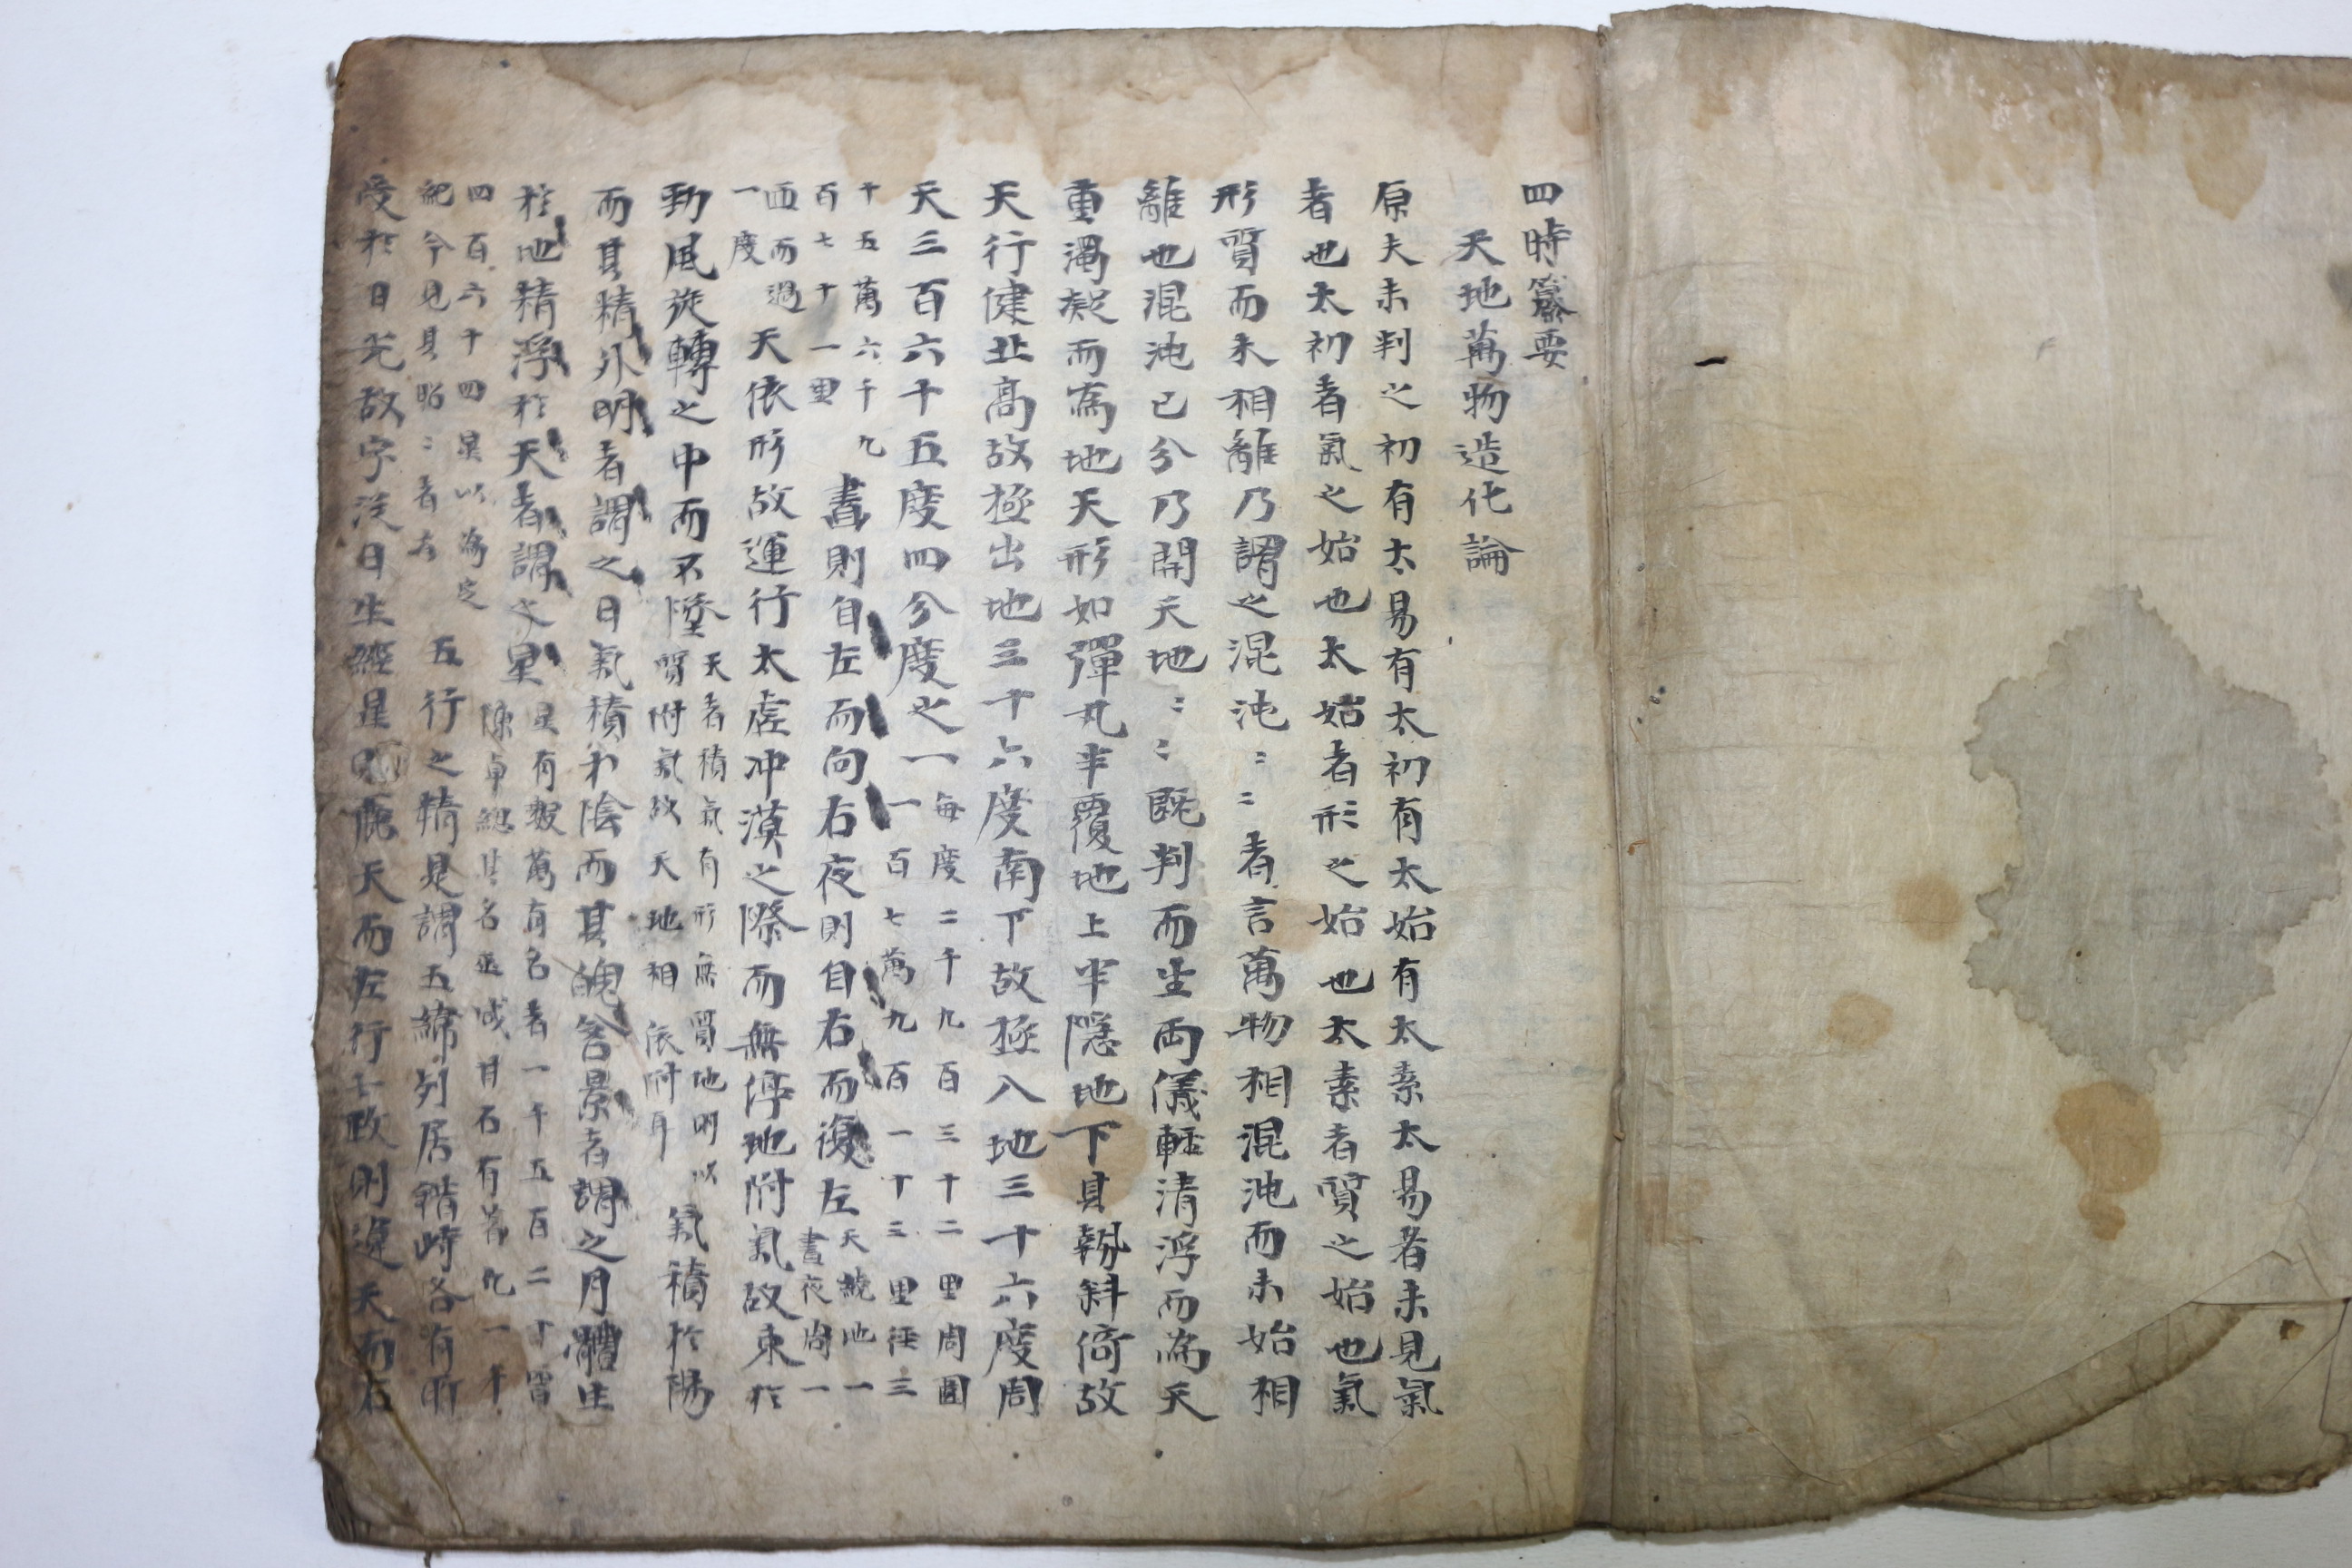 四時纂要
天地萬物造化論
原夫未判之初有太易有太初有太始有太素太易者未見氣
者也太初者氣之始也太始者形之始也太素者質之始也氣
形質而未相離乃謂之混沌〻〻者言萬物相混沌而未始相
離也混沌已分乃開天地〻〻既判而生兩儀輕清浮而為天
重濁凝而為地天形如彈丸半覆地上半隱地下其勢斜倚故
天行健北高故極出地三十六度南下故極入地三十六度周
天三百六十五度四分度之一
每度二千九百三十二里周圍
一百七萬九百一十三里徑三
十五萬六千九
百七十一里
晝則自左而向右夜則自右而復左
天繞地一
晝夜周一
西而過
一度
天依形故運行太虛冲漠之際而無停地附氣故束於
勁風旋轉之中而不墜
天者積氣有形無質地附以
質附氣故天地相依附耳
氣積於陽
而其精外明者謂之日氣積於陰而其魄含景者謂之月體生
於地精浮於天者謂之星
星有數萬有名者一千五百二十
陳卓總其名巫咸甘石有著凡一千
四百六十四星以為定
紀今見其昭〻者
五行之精是謂五緯列居錯峙各有所
受於日光故字從日生經星麗天而左行七政則違天而右